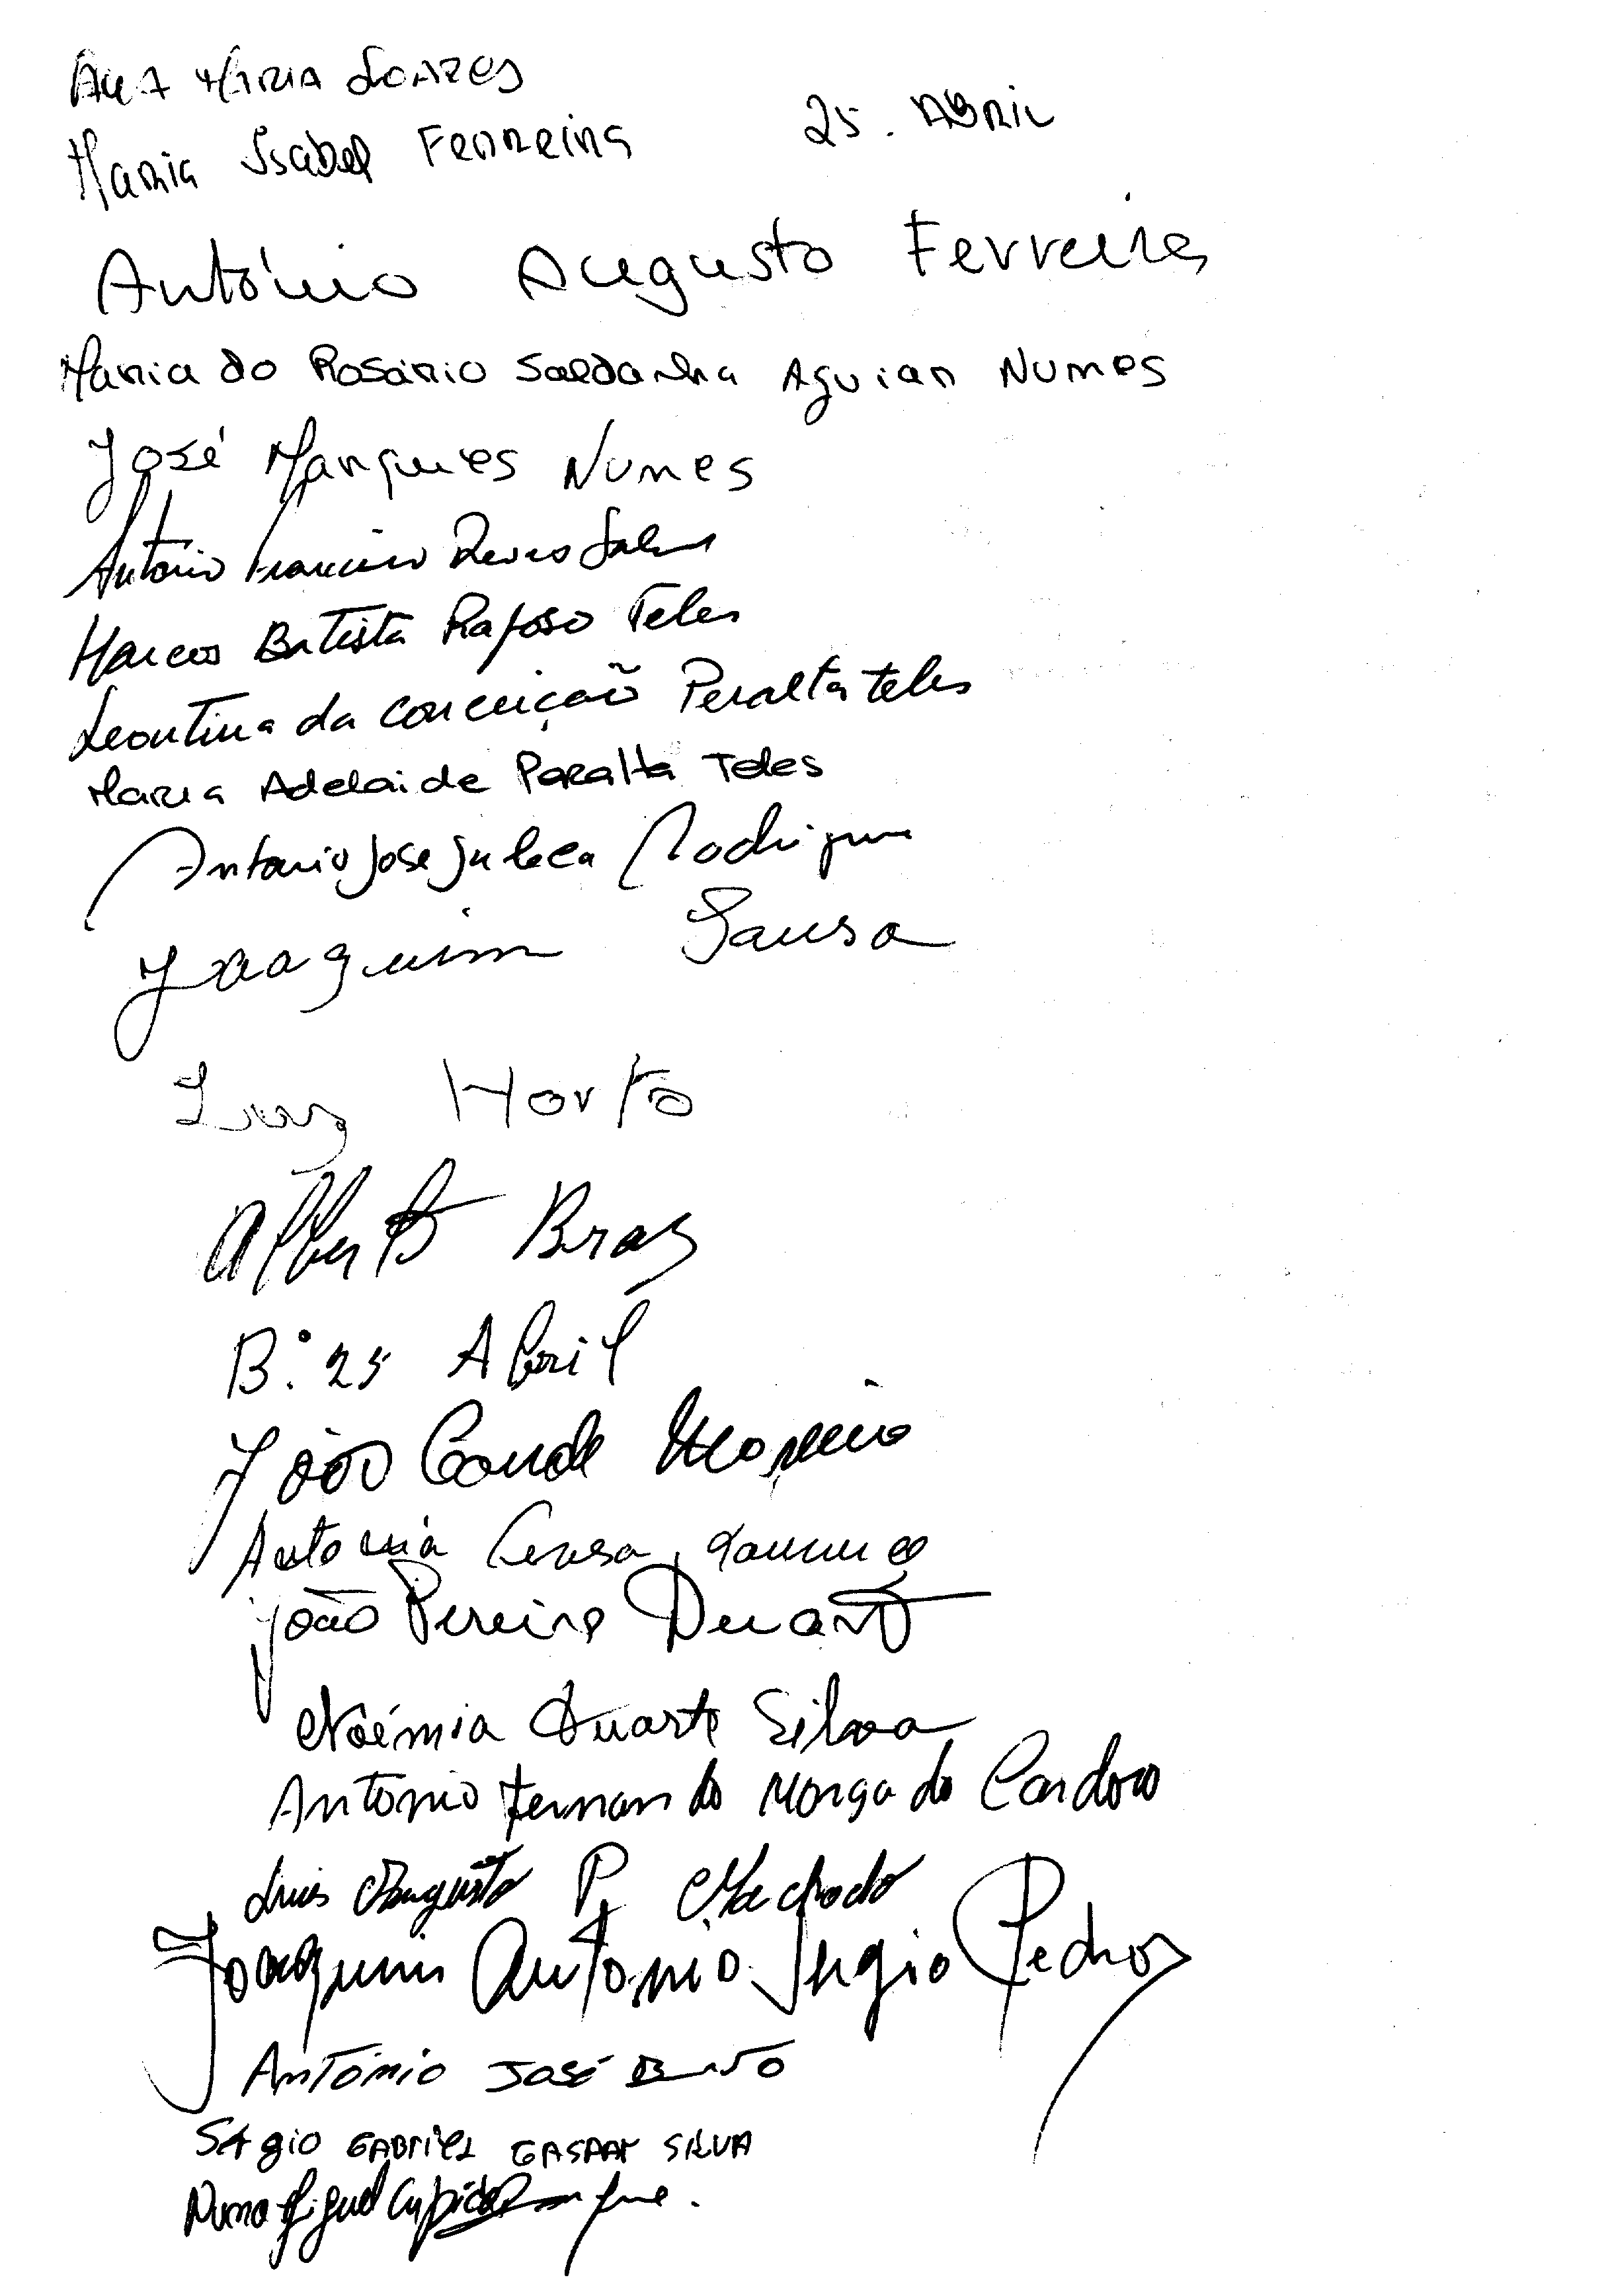 Ana Maria Soares
Maria Isabel Ferreira 25. Abril
António Augusto Ferreira
Maria do Rosário Saldanha Aguiar Nunes
José Marques Nunes
António Francisco
Marcos Batista Raposo Teles
Leontina da Conceição Peralta teles
Maria Adelaide Peralta Teles
Antonio Jose Rodrigues
Joaquim Sousa
Luiz Horta
Alberto Braz
B.º 25 Abril
João Conde
Antonia
João Pereira Duarte
Noémia Duarte Silva
António Fernando Morgado Cardoso
Luis Augusto P. Machado
Joaquim António Sergio Pedro
António José
Sérgio GABRIEL GASPAR SILVA
Nuno Miguel